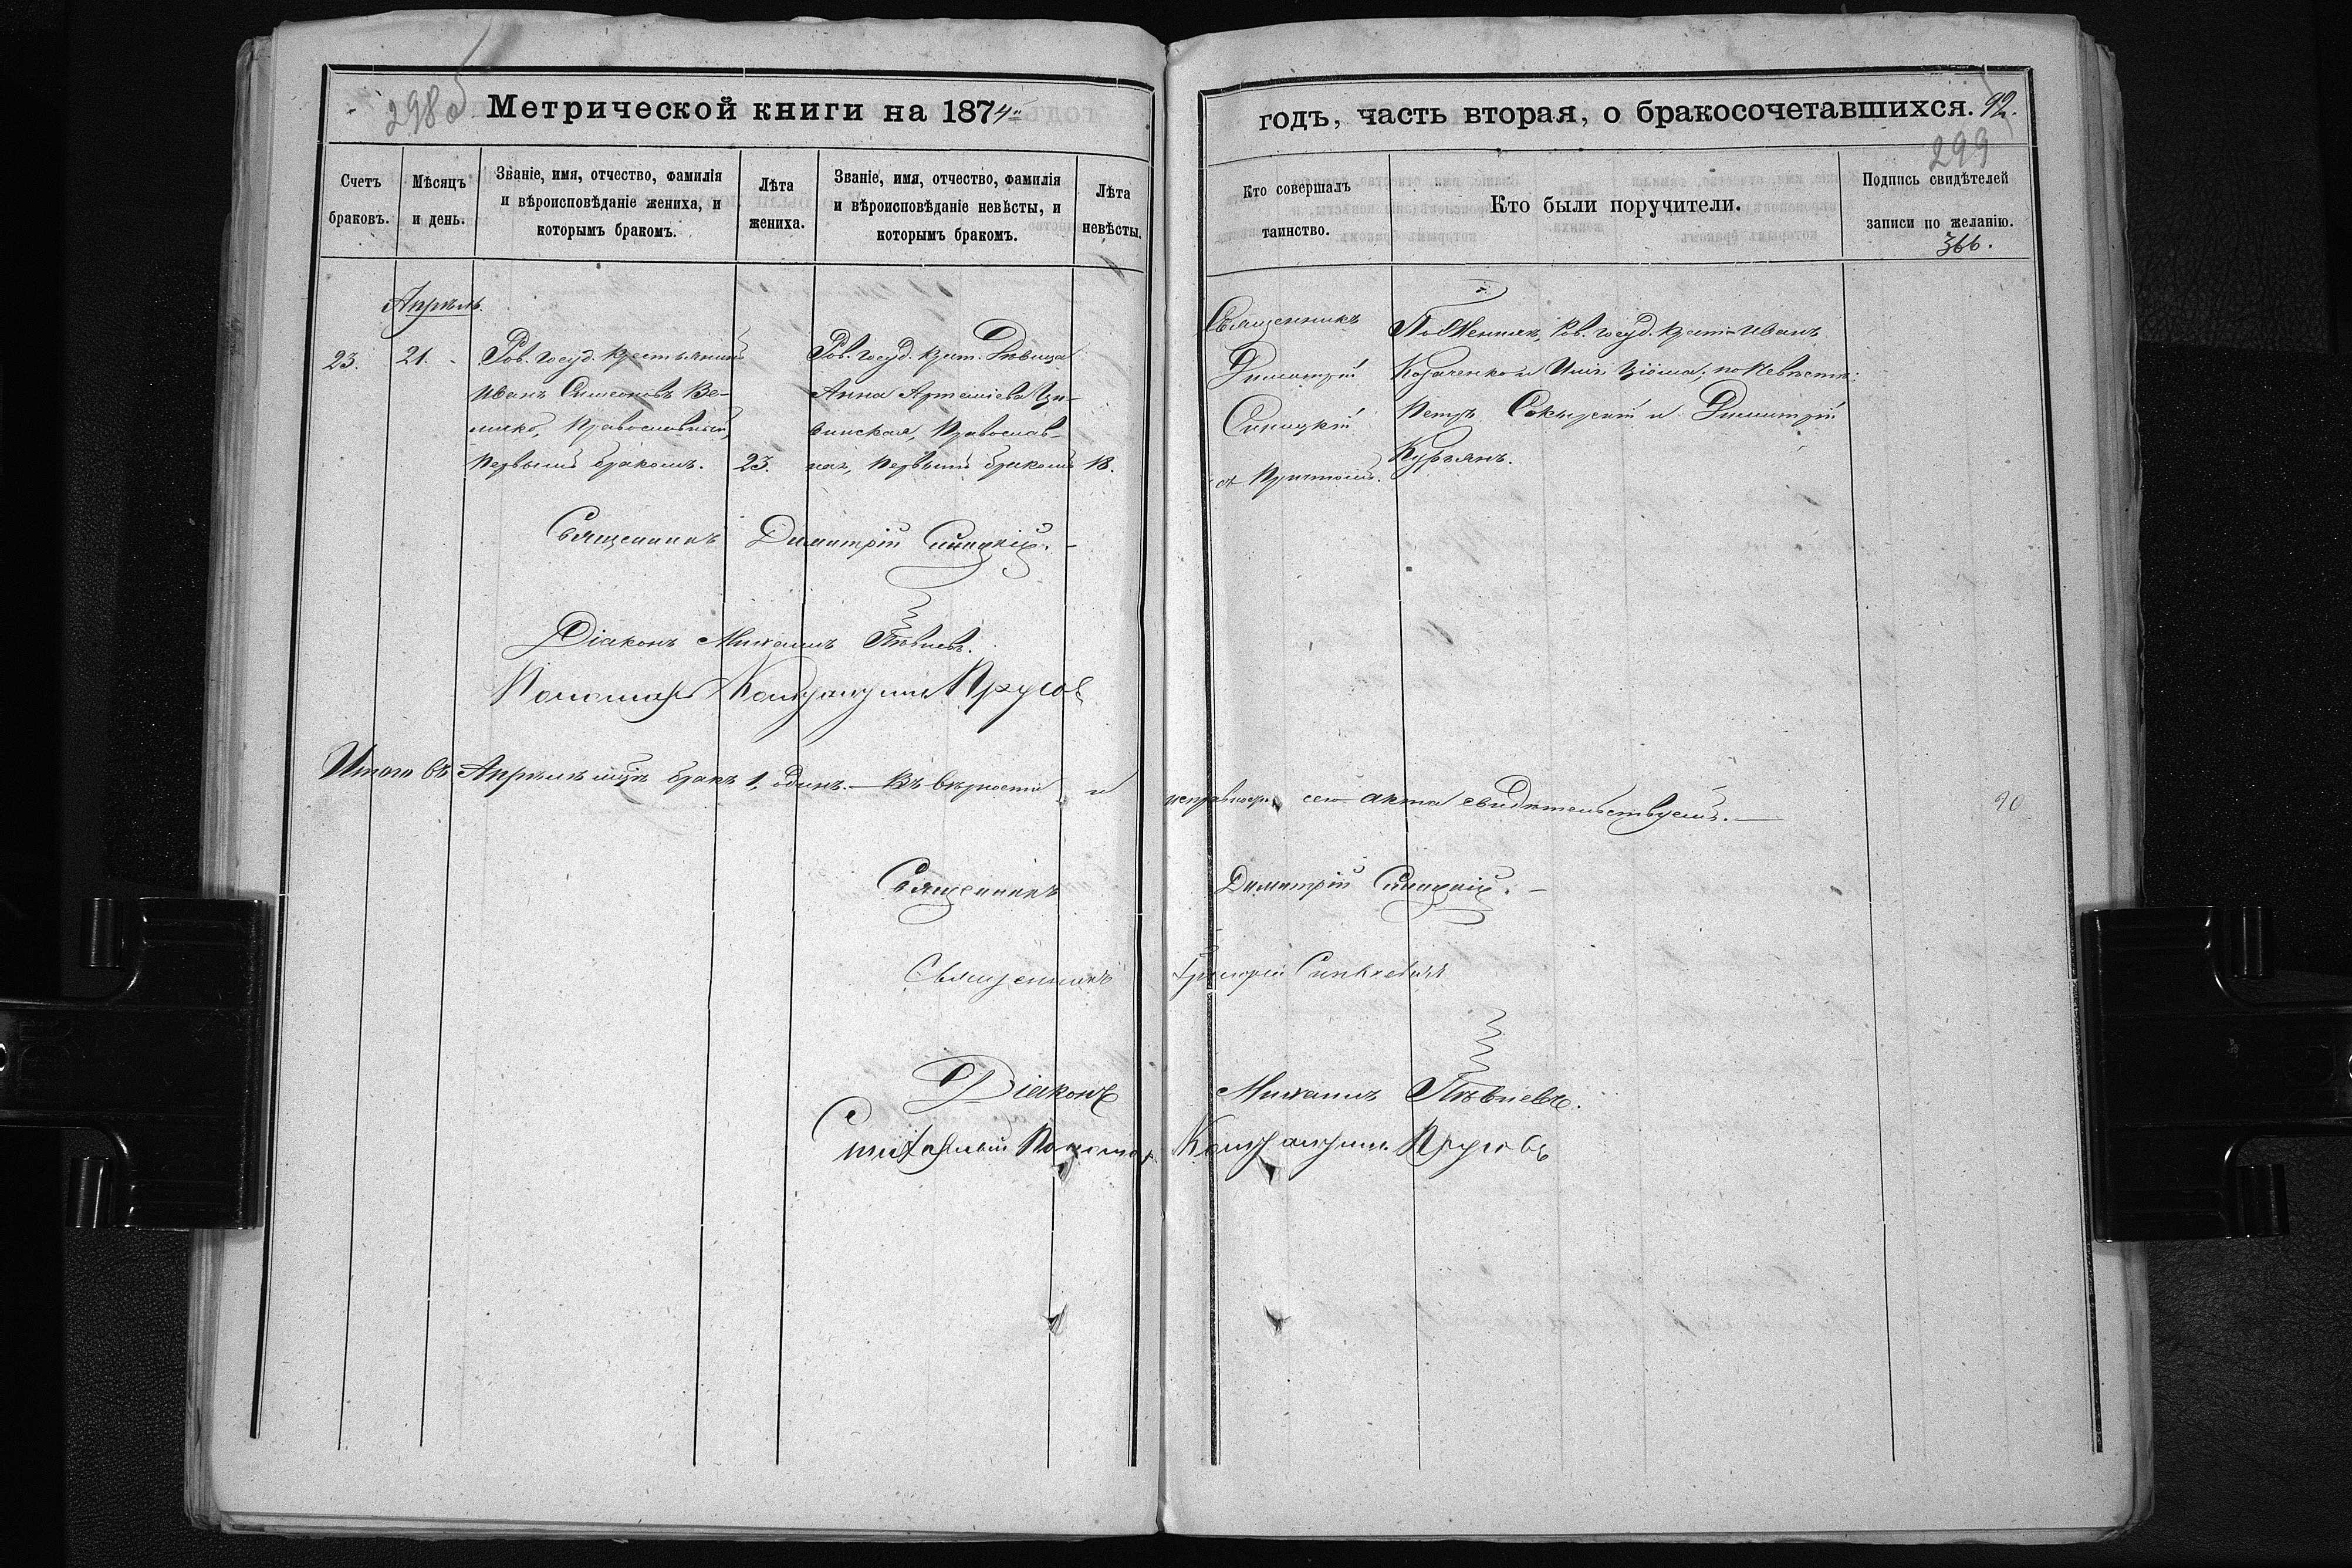 298 об
Метрической книги на 1874
годъ, часть вторая, о бракосочетавшихся. 92.
299
Счетъ браковъ.
Мѣсяцъ и день.
Званіе, имя, отчество, фамилія и вѣроисповѣданіе жениха, и которымъ бракомъ.
Лѣта жениха.
Званіе, имя, отчество, фамилія и вѣроисповѣданіе невѣсты, и которымъ бракомъ.
Лѣта невѣсты.
Кто совершалъ таинство.
Кто были поручители.
Подпись свидѣтелей записи по желанію.
366.
Апрѣль
23.
21.
Госуд. Крестьянинъ
Иванъ Симеоновъ Ве-
личко, Православный,
первымъ бракомъ.
23.
Госуд. Крест. Дѣвица
Анна Артеміева
Православ-
ная, первымъ бракомъ
18.
Священникъ
Димитрій
Синицкій
съ Причтомъ.
По Женихѣ, госуд. Крест. Иванъ
Козаченко и по Невѣстѣ:
Петръ и Димитрій
Курьянъ.
Священникъ Димитрій Синицкій.
Діаконъ Михаилъ Пѣвневъ.
Пономарь Прусовъ
Итого въ Апрѣлѣ м-цѣ бракъ 1, одинъ. — Въ вѣрности и
сего акта свидѣтельствуемъ. —
20
Священникъ Димитрій Синицкій. —
Священникъ Григорій Синкевичъ
Діаконъ Михаилъ Пѣвневъ.
Пономарь Прусовъ